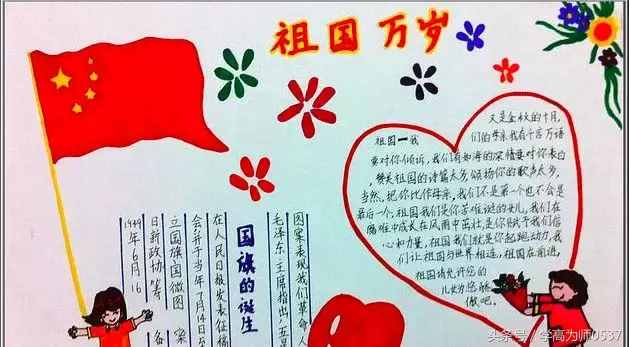 祖国万岁
又是金秋的十月,
祖国一我们的母亲我有千言万语
要对你倾诉,我们有如海的深情要对你表白
,赞美祖国的诗篇太多,倾扬你的歌声太多,
当然,把你比作母亲,我们不是第一个也不会是
最后一个,祖国我们是你苦难的女儿,我们在
难中成长在风雨中茁壮,是你赋予我们信
心和力量,祖国我们就是你起跑动力,我
们让祖国与世界相连,祖国在前进,
祖国请允许您的
儿女为您骄
傲吧。
国旗的诞生
1949年6月16
日新政协筹备
立国旗国徽图案
会并于当年7月14日至
在人民日报发表征稿
毛泽东主席指出:"五星
因案表现我们革命人
头条号／学高为师0537